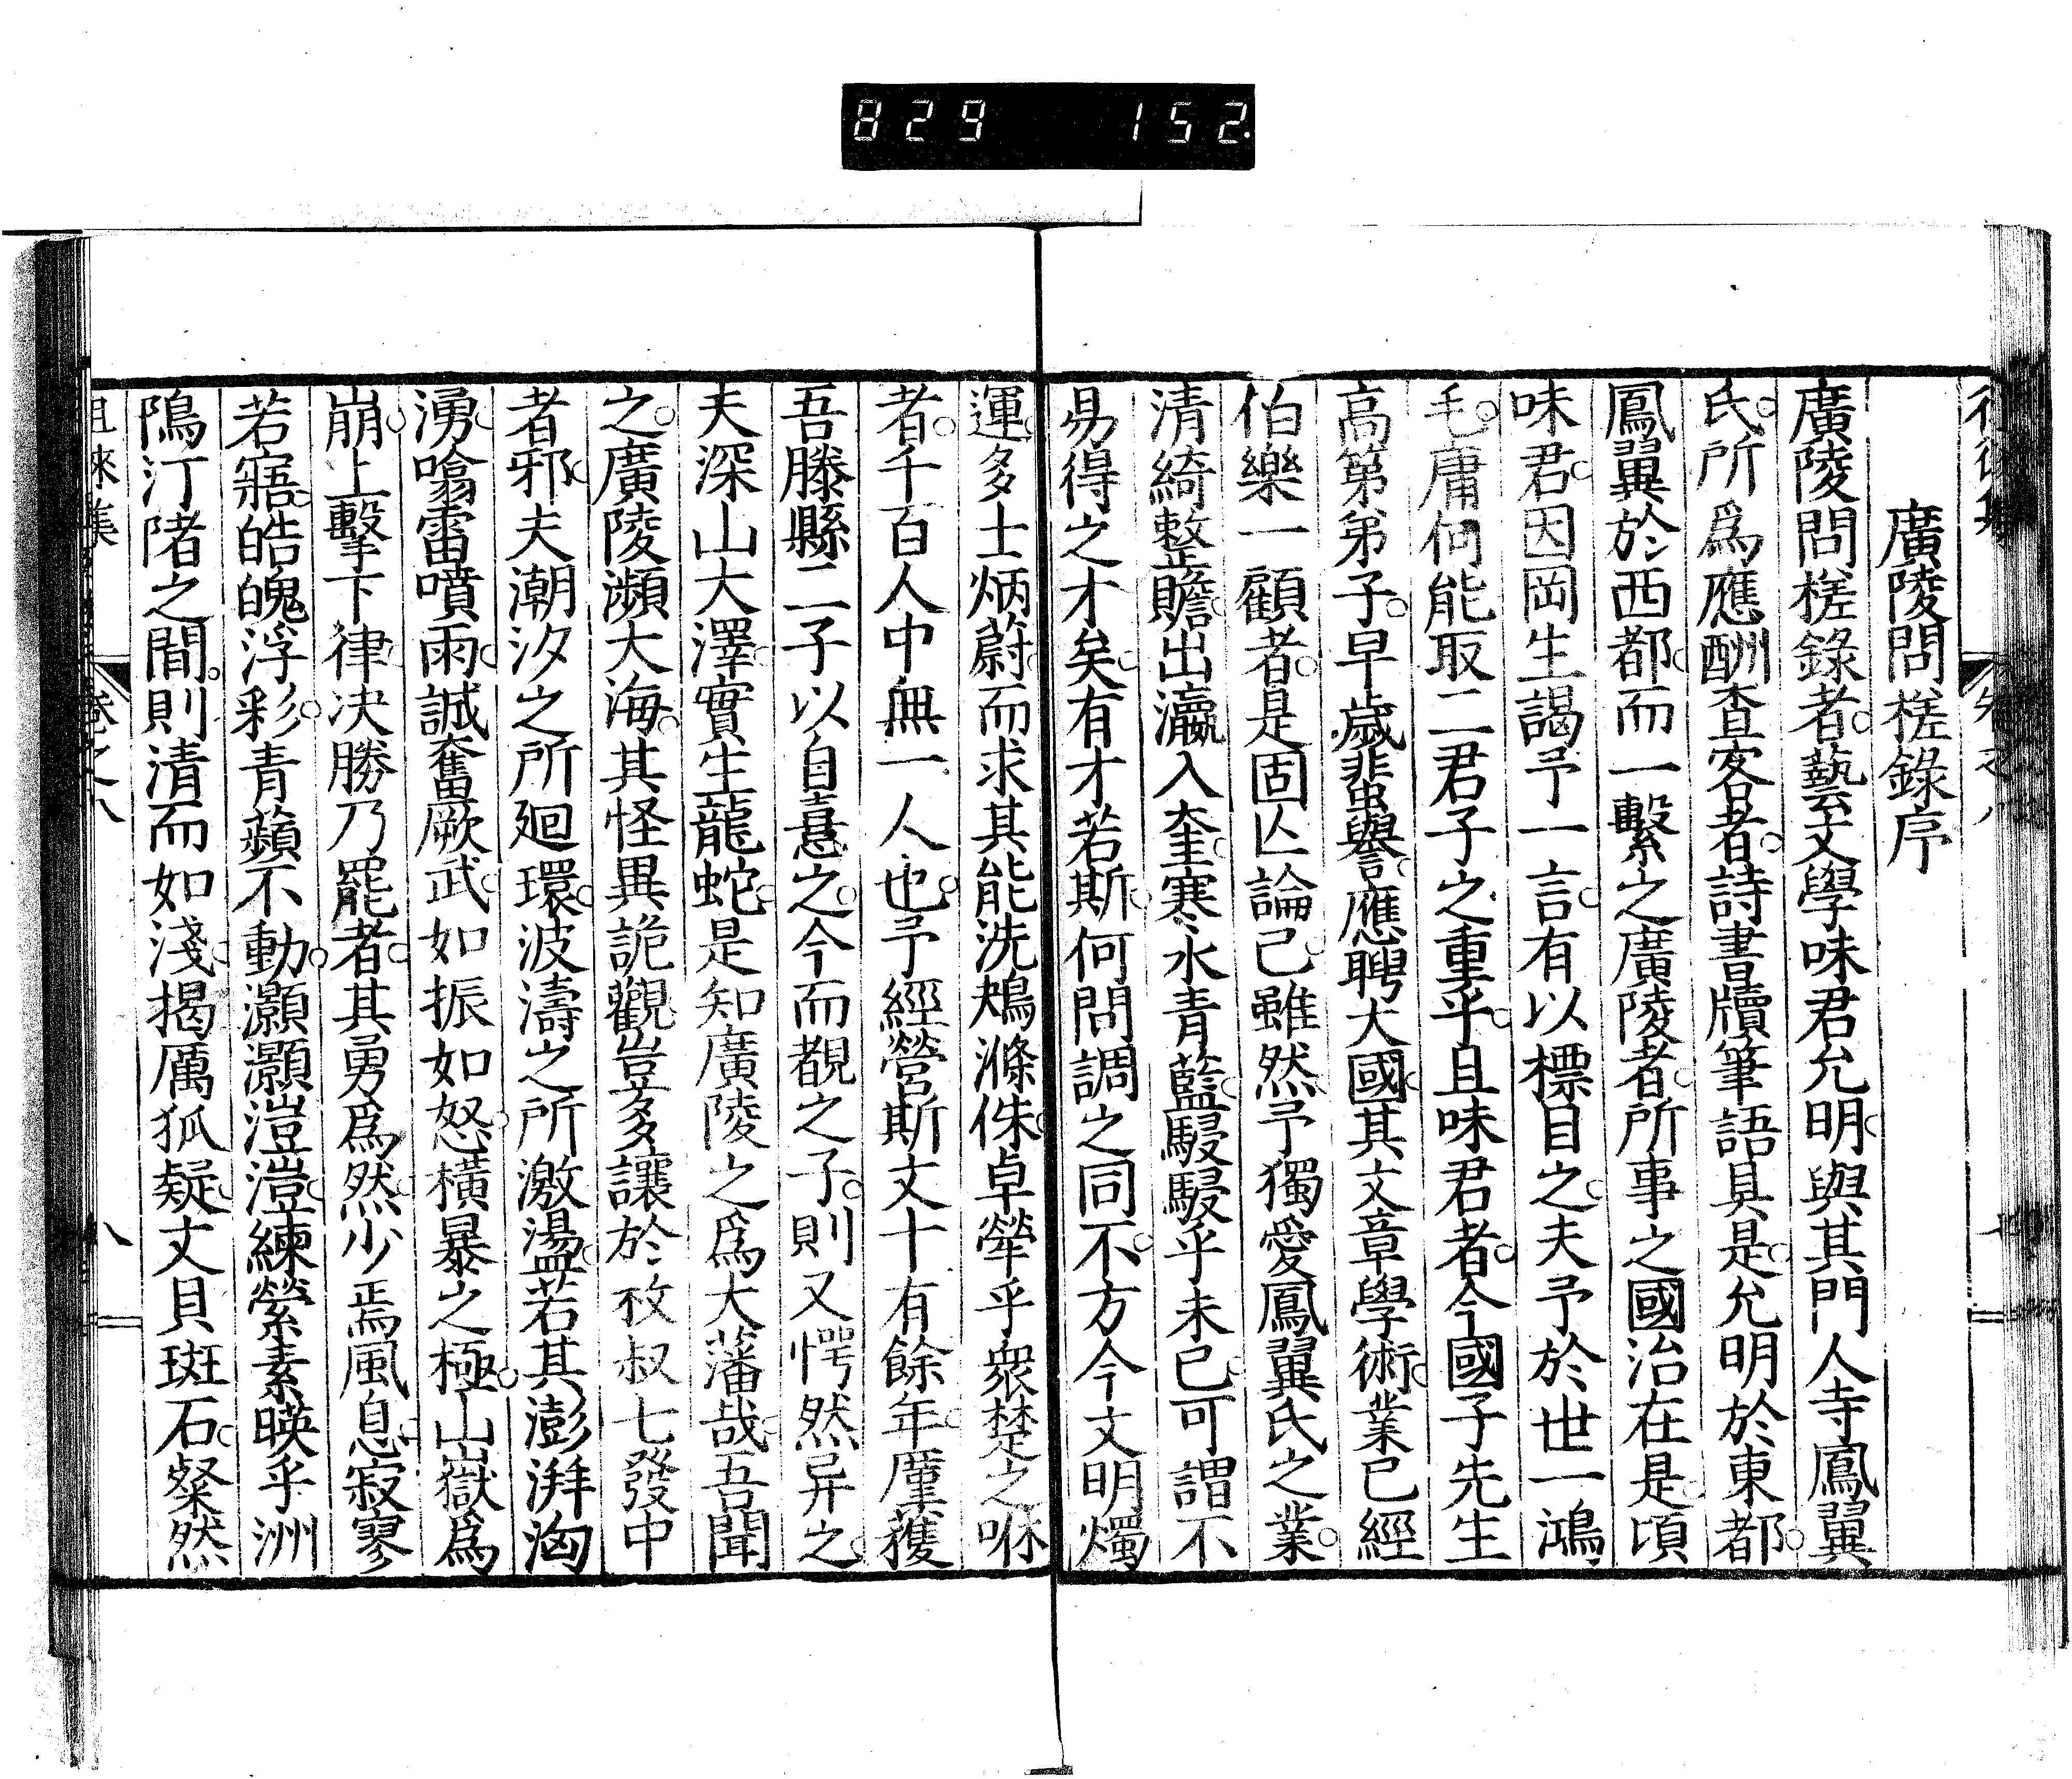 829 152.
廣陵問槎錄序
廣陵問槎錄者。藝文學味君允明。與其門人寺鳳翼
氏。所爲應酬查客者。詩書牘筆語具是。允明於東都。
鳳翼於西都。而一繫之廣陵者。所事之國治在是。頃
味君。因岡生謁予一言。有以標目之。夫予於世一鴻
毛。庸何能取二君子之重乎。且味君者。今國子先生
高第弟子。早歲蜚譽。應聘大國。其文章學術。業已經
伯樂一顧者。是固亡論已。雖然。予獨愛鳳翼氏之業。
清綺整贍。出瀛入奎。寒水青藍。駸駸乎未已。可謂不
易得之才矣。有才若斯。何問調之同不。方今文明燭
運。多士炳蔚。而求其能洗鴂滌侏。卓犖乎衆楚之咻
者。千百人中無一人也。予經營斯文十有餘年。厪獲
吾滕縣二子以自憙之。今而覩之子。則又愕然异之。
夫深山大澤。實生龍蛇。是知廣陵之爲大藩哉。吾聞
之。廣陵瀕大海。其怪異詭觀。豈多讓於枚叔七發中
者邪。夫潮汐之所廻環。波濤之所激盪。若其澎湃洶
湧。噏雷噴雨。誠奮厥武。如振如怒。橫暴之極。山嶽爲
崩。上擊下律。決勝乃罷者。其勇爲然。少焉風息。寂寥
若寤。皓魄浮彩。青蘋不動。灝灝溰溰。練縈素暎乎洲
隝汀陼之間。則清而如淺。揭厲狐疑。文貝斑石。粲然
徂徠集
卷之八
八